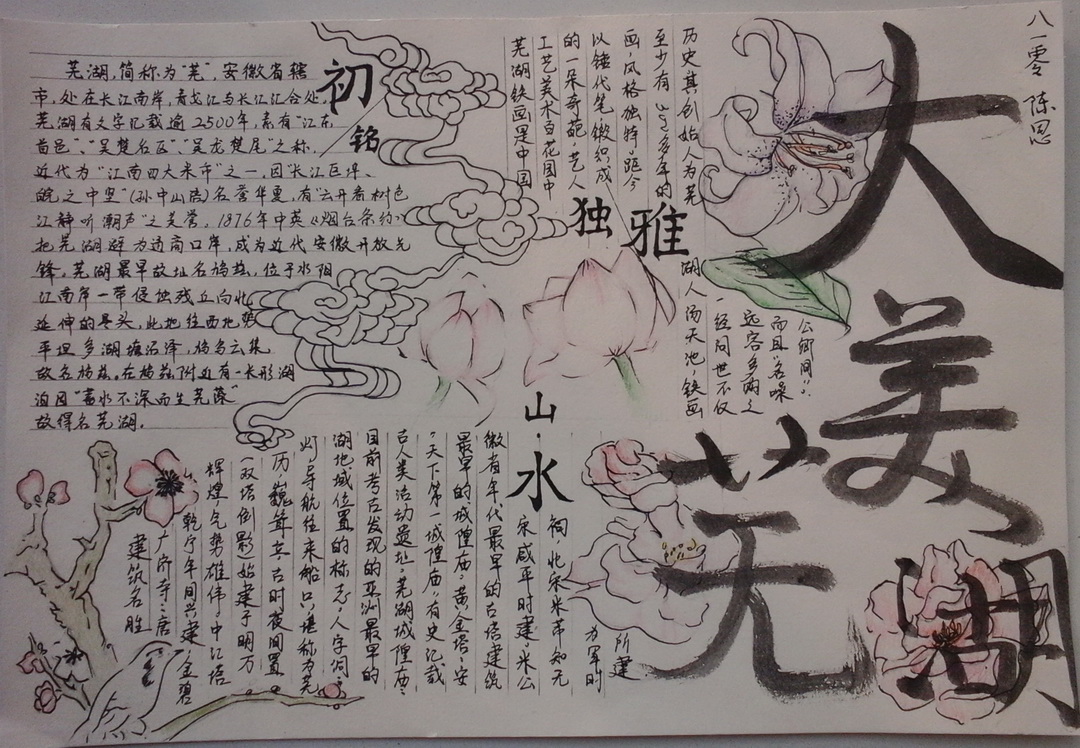 八一零 陈恩
大美芜湖
初/铭
芜湖,简称为"芜",安徽省辖
市,处在长江南岸,青戈江与长江汇合处,
芜湖有文字记载逾2500年,素有"江东
首邑"、"吴楚名区"、"吴龙楚尾"之称,
近代为"江南四大米市"之一,因"长江巨埠、
皖之中坚"(孙中山语)名誉华夏,有"云开看树色
江静听潮声"之美誉,1876年中英《烟台条约》
把芜湖辟为通商口岸,成为近代安徽开放先
锋,芜湖最早故址名鸠兹,位于水阳
江南岸一带侵蚀残丘向北
延伸的尽头,此地往西地势
平坦多湖塘沼泽,鸠鸟云集
故名鸠兹。在鸠兹附近有一长形湖
泊因"蓄水不深而生芜藻"
故得名芜湖.
独/雅
芜湖铁画是中国
工艺美术百花园中
的一朵奇葩,艺人
以锤代笔锻织成
画,风格独特,距今
至少有300多年的
历史其创始人为芜
湖人汤天池,铁画
一经问世不仅
远客多购之
而且"名噪
公卿间".
山·水
建筑名胜
广济寺:唐
乾宁年间兴建,金碧
辉煌,气势雄伟,中江塔
(双塔倒影)始建于明万
历,巍耸立,古时夜间置
灯,导航往来船只,堪称为芜
湖地域位置的标志,人字洞:
目前考古发现的亚洲最早的
古人类活动遗址,芜湖城隍庙:
"天下第一城隍庙,有史记载
最早的城隍庙,黄金塔:安
徽省年代最早的古塔建筑
宋咸平时建,米公
祠,北宋米芾知无
为军时
所建